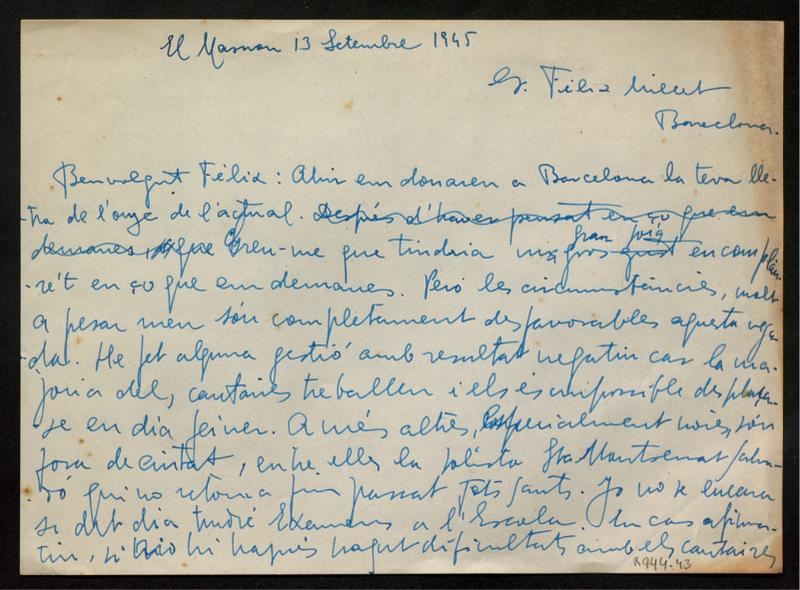 El Masnou 13 Setembre 1945
Sr. Fèlix Millet
Barcelona.
Benvolgut Fèlix: Ahir em donaren a Barcelona la teva lle-
tra de l'onze de l'actual. Després d'haver pensat en ço que em
demanes que Creu-me que tindria gran joia gust en complau-
re't en ço que em demanes. Però les circumstàncies, molt
a pesar meu són completament desfavorables aquesta vega-
da. He fet alguna gestió amb resultat negatiu car la ma-
joria dels cantaires treballen i els és impossible desplaça-
se en dia feiner. A més altres, especialment noies, són
fora de ciutat, entre elles la solista Sta Montserrat Salva-
dó qui no retorna fins passat Tots Sants. Jo no se encara
si dit dia tindré Examens a l'Escola. En cas afirma-
tiu, si no hi hagués hagut dificultats amb els cantaires
R944.43